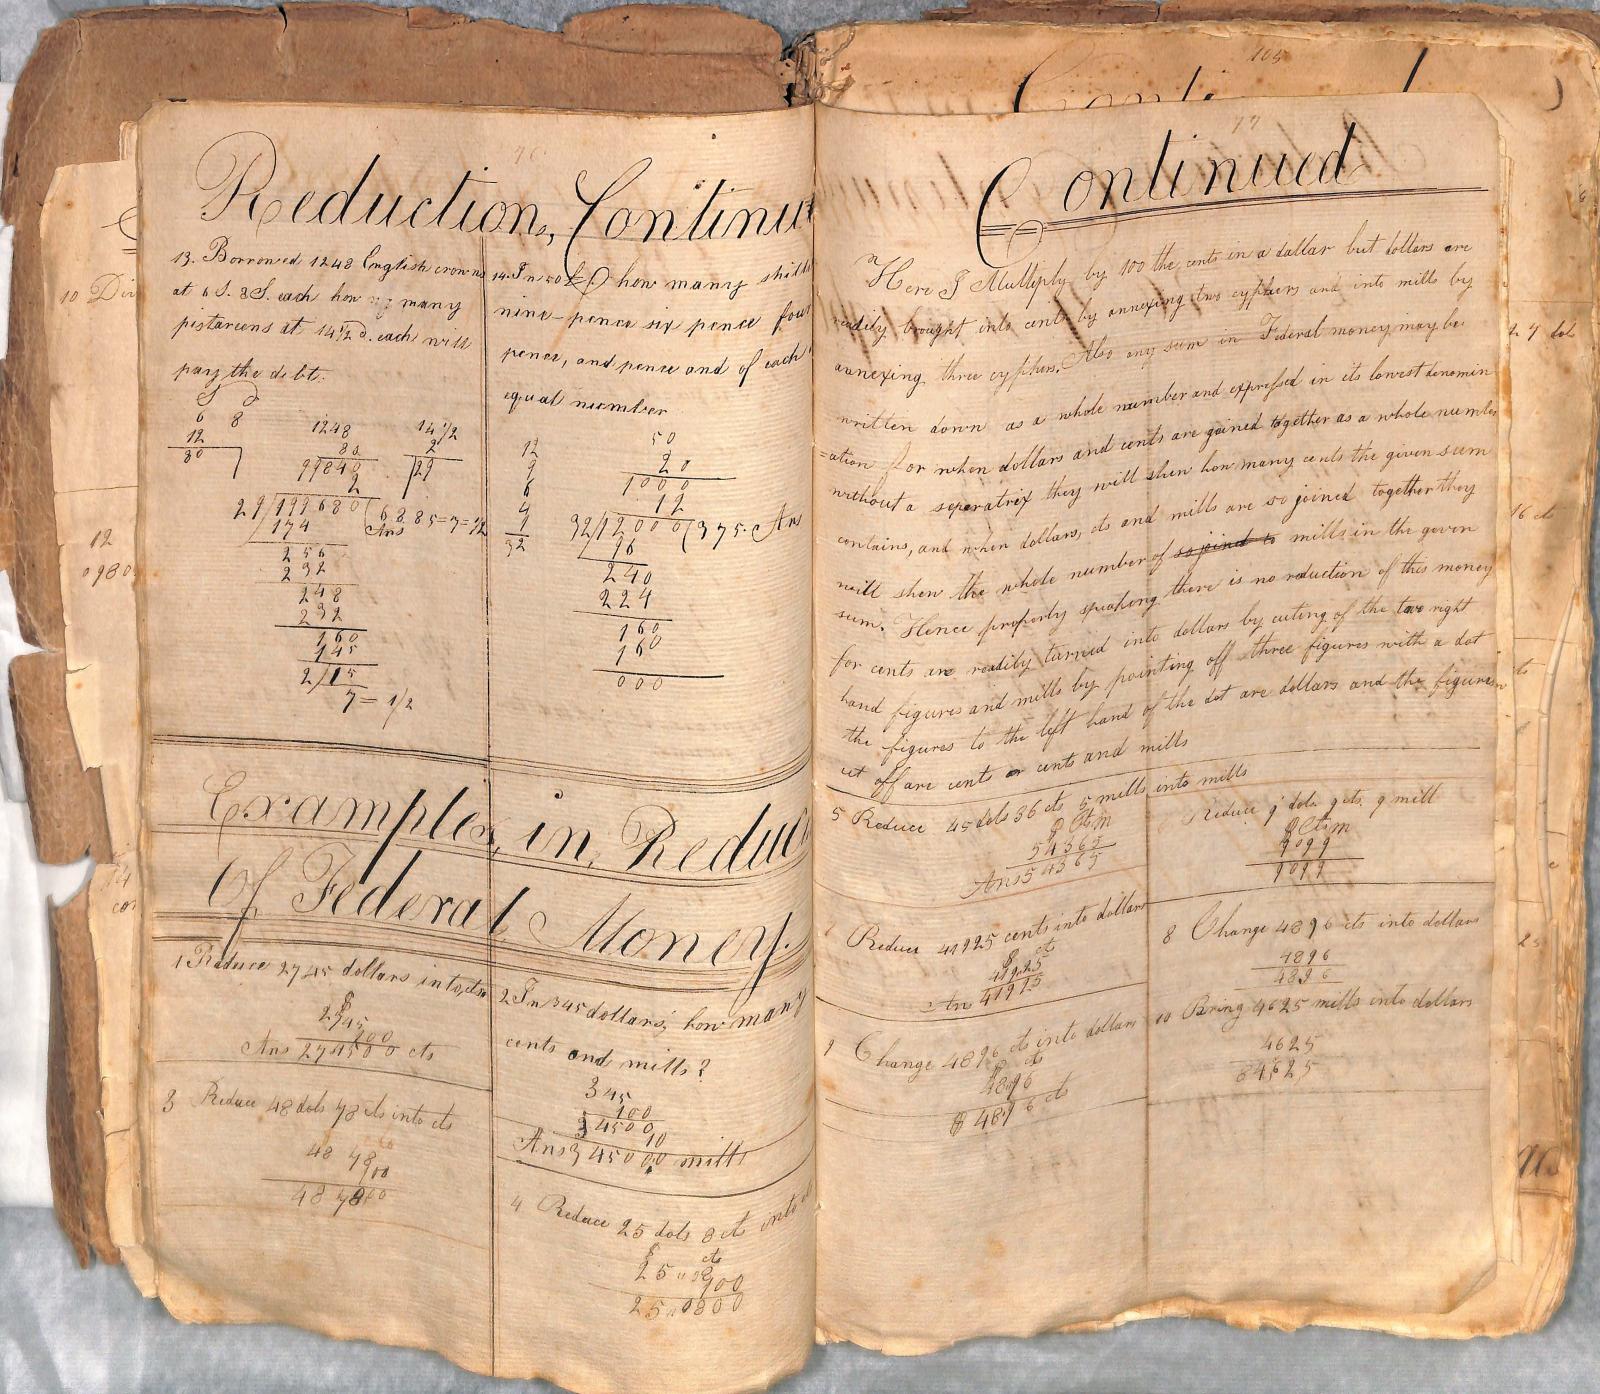 76
Reduction, Continu
13. Borrowed 1248 English crowns
at 6 S. 8 S. each how many
pistareens at 14 1/2 d. each will
pay the debt.
S d
6 8
12
80
1248
80
99840
2
14 1/2
2
29
29/199680(6885=7=1/2
Ans
174
256
232
248
232
160
145
2/15
7=1/2
14. In 50 £ how many shill
nine-pence six pence four
pence, and pence and of each
equal number
12
9
6
4
1
32
50
20
1000
12
32/12000(375. Ans
96
240
224
160
160
000
Examples, in, Reduc
Of Federal Money.
1 Reduce 2745 dollars into, cts
$
2745
100
Ans 274500 cts
2 In 345 dollars, how many
cents and mills?
345
100
34500
10
Ans 345000 mills
3 Reduce 48 dols 78 cts into cts
48 78
100
48 78
4 Reduce 25 dols 8 cts into
$ cts
25 " 08
100
25 " 0800
105
Conti
77
Continued
Here I Multiply by 100 the cents in a dallar but dollars are
readily brought into cents by annexing two cyphers and into mills by
annexing three cyphers. Also any sum in Federal money may be
written down as a whole number and expressed in its lowest denomin
=ation for when dollars and cents are joined together as a whole numbe
without a seperatrix they will shew how many cents the given sum
contains, and when dollars, cts and mills are so joined together they
will shew the whole number of so joined to mills in the given
sum. Hence properly speaking there is no reduction of this money
for cents are readily turned into dollars by cuting of the two right
hand figures and mills by pointing off three figures with a dot
the figures to the left hand of the dot are dollars and the figures
cut off are cents or cents and mills
5 Reduce 45 dols 36 cts 5 mills into mills
$ Cts m
54365
Ans 54365
Reduce 9 dols 9 cts. 9 mill
$ Cts m
9099
9099
Reduce 41925 cents into dollars
$ cts
419.25
An 41925
8 Change 4896 cts into dollars
4896
4896
9 Change 4896 cts into dollars
$ cts
4896
$ 4896 cts
10 Bring 4625 mills into dollars
4625
$4625
10 Di
12
0980
27 dol
16 cts